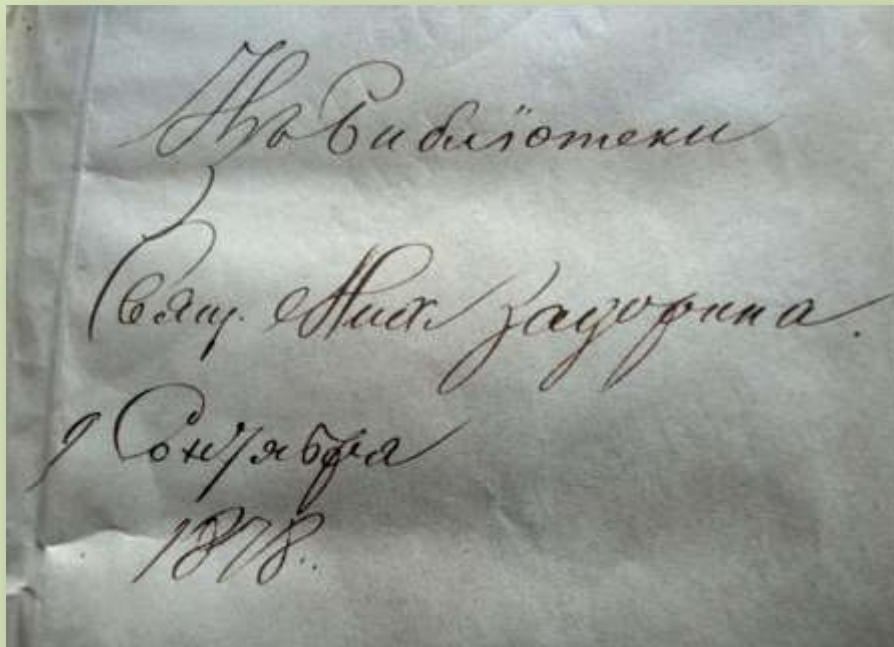 Изъ Библіотеки
Свящ. Мих. Задорина.
9 Сентября
1878.